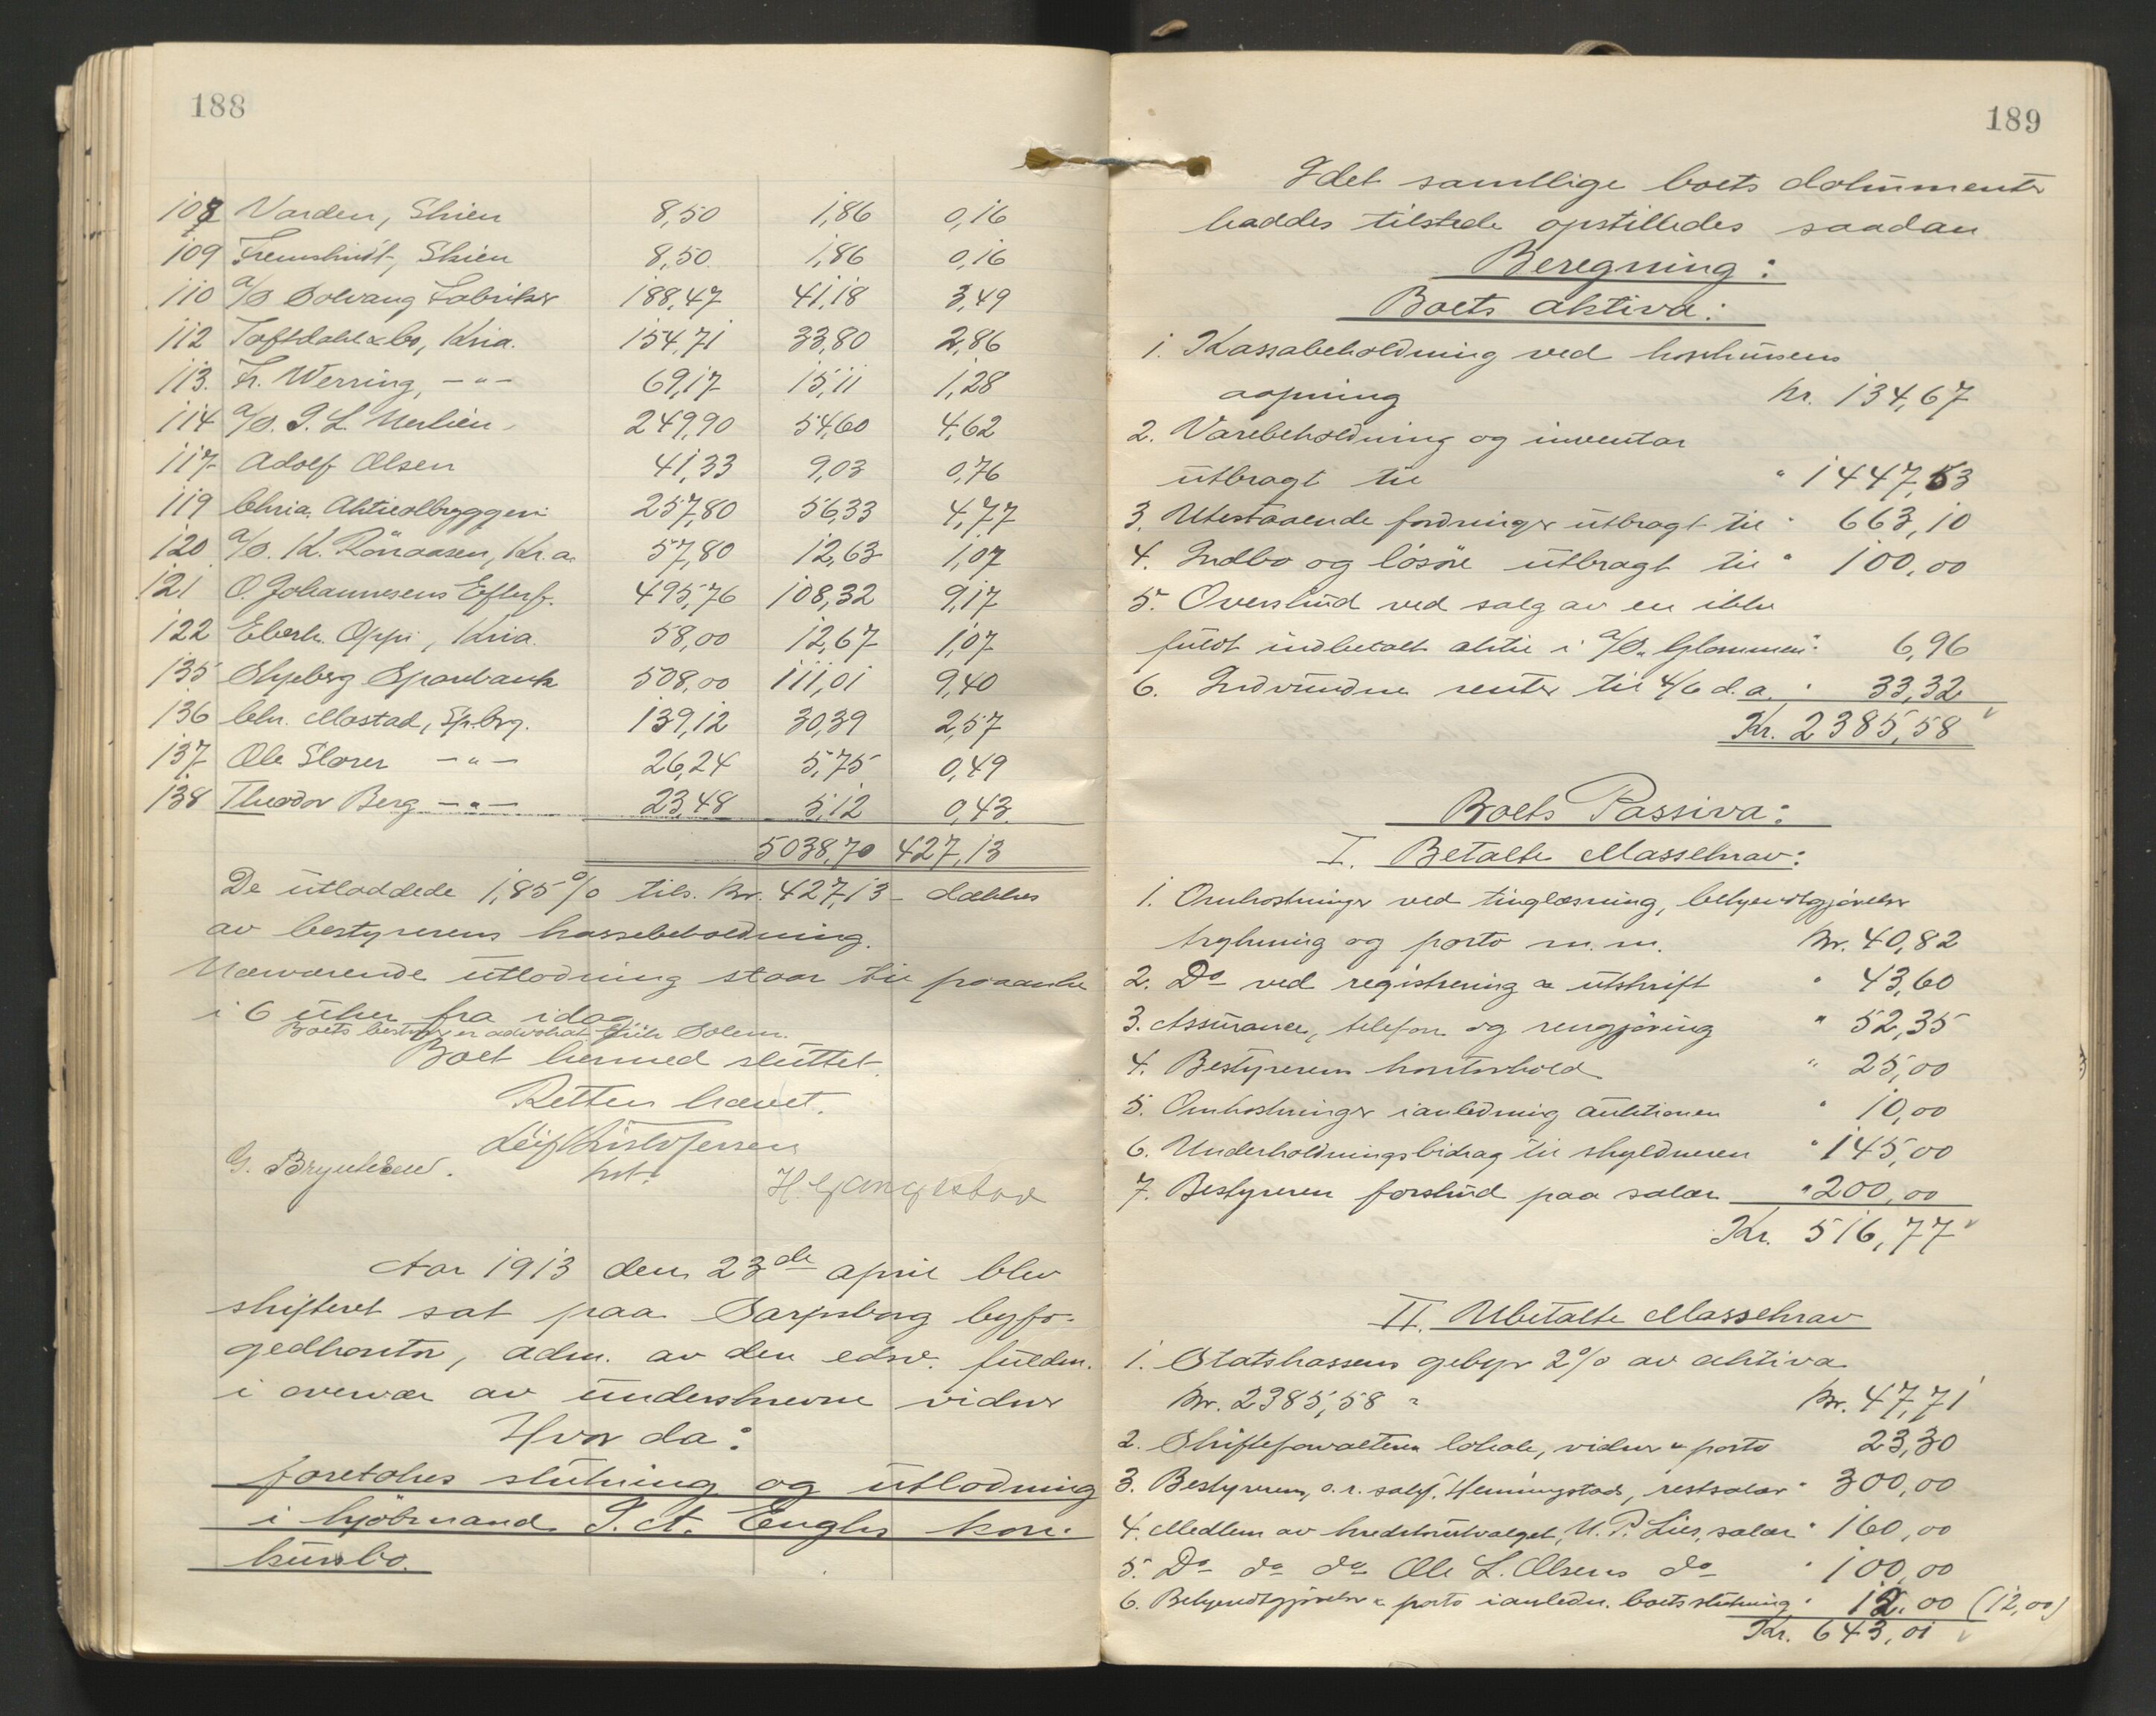 188
108 Varden, Skien 8,50 1,86 0,16
109 Fremskridt, Skien 8,50 1,86 0,16
110 a/S Solvang Fabriker 188,47 41,18 3,49
112 Toftdahl & Co, Kria. 154,71 33,80 2,86
113. Fr. Werring, -"- 69,17 15,11 1,28
114 a/S. P. L. 249,90 54,60 4,62
117 Adolf Olsen 41,33 9,03 0,76
119 Chria. Aktieølbryggeri 257,80 56,33 4,77
120 a/S. K. Rönaasen, Kr.a. 57,80 12,63 1,07
121 O. Johannesens Efterf. 495,76 108,32 9,17
122 Eberh. Oppi, Kria. 58,00 12,67 1,07
135 Skjeberg Sparebank 508,00 111,01 9,40
136 Chr. Mostad, Sp.brg. 139,12 30,39 2,57
137 Ole Slorer -"- 26,24 5,75 0,49
138 Theodor Berg -"- 23,48 5,12 0,43
5038,70 427,13
De utloddede 1,85 % tils. kr. 427,13 - dækkes
av bestyrerens kassebeholdning.
Nærværende utlodning staar til paaanke
i 6 uker fra idag.
Boets bestyrer er advokat Solem.
Boet hermed sluttet.
Retten hævet.
Leif Kristofersen
G. Bryntesen. kst.
Aar 1913 den 23de april blev
skifteret sat paa Sarpsborg byfo-
gedkontor, adm. av den edsv. fuldm.
i overvær av underskrevne vidner
Hvor da:
foretokes slutning og utlodning
i kjöbmand P. A. Enghs kon-
kursbo.
189
Idet samtlige boets dokumenter
haddes tilstede opstilledes saadan
Beregning:
Boets aktiva:
1. Kassabeholdning ved konkursens
aapning kr. 134,67
2. Varebeholdning og inventar
utbragt til " 1447,53
3. Utestaaende fordringer utbragt til " 663,10
4. Indbo og lösöre utbragt til " 100,00
5. Overskud ved salg av en ikke
fuldt indbetalt aktie i a/S. Glommen " 6,96
6. Indvundne renter til 4/6 d.a. " 33,32
Kr. 2385,58
Boets Passiva:
I. Betalte Massekrav:
1. Omkostninger ved tinglæsning, bekjendtgjörelse
trykning og porto m.m. kr. 40,82
2. Do ved registrering & utskrift " 43,60
3. Assurance, telefon og rengjöring " 52,35
4. Bestyrerens kontorhold " 25,00
5. Omkostninger i anledning auktionen " 10,00
6. Underholdningsbidrag til skyldneren " 145,00
7. Bestyreren forskud paa salær " 200,00
Kr. 516,77
II. Ubetalte Massekrav
1. Statskassens gebyr 2% av aktiva
kr. 2385,58 = kr. 47,71
2. Skifteforvalteren lokale, vidner & porto 23,30
3. Bestyreren, o.r. sakf. Henningstad, restsalær " 300,00
4. Medlem av kreditorutvalget, U. P. Lier, salær " 160,00
5. Do do do Ole L. Olsens do " 100,00
6. Bekjendtgjörelse & porto i anledn. boets slutning " 12,00 (12,00)
Kr. 643,01